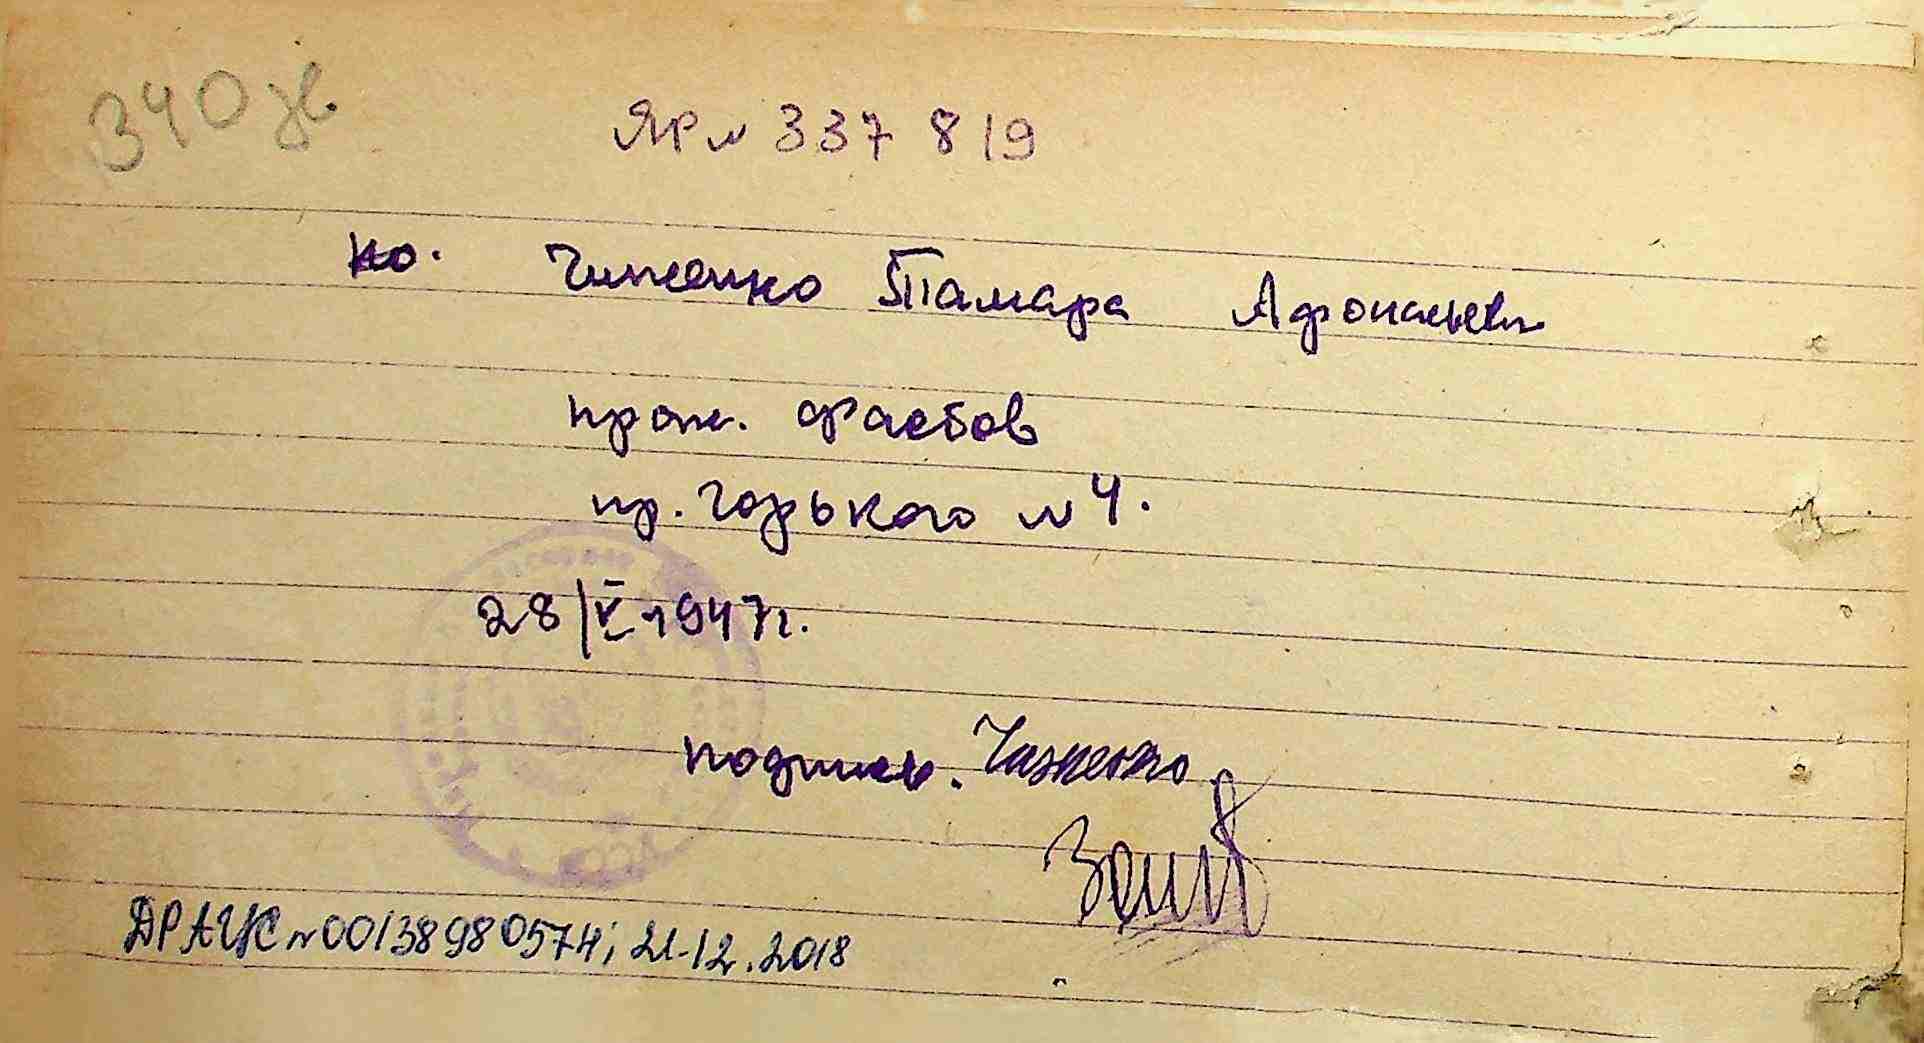 340 зв
ЯР № 337 819
Чиженко Тамара Афонасьевн
прож. Фастов
пр. Горького № 4.
28/V 1947 г.
подпись. Чиженко
ДРАЦС № 00138980574; 21.12.2018